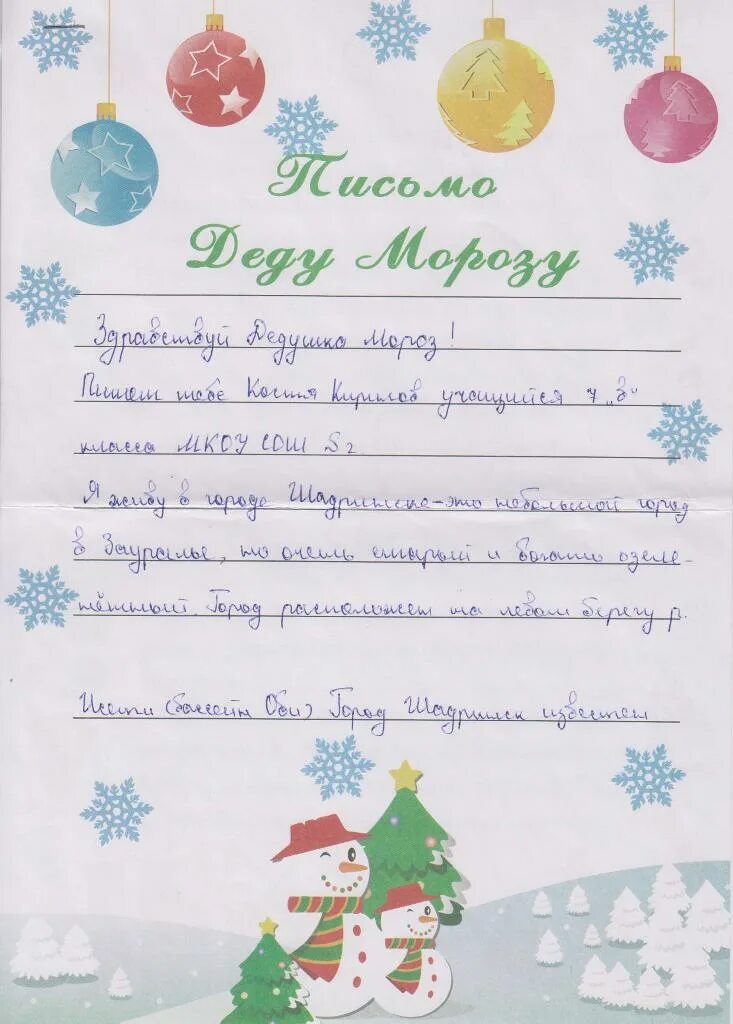 Письмо
Деду Морозу
Здравствуй Дедушка Мороз!
Пишет тебе Костя Кирилов учащийся 7 „в"
класса МКОУ СОШ
Я живу в городе Шадринске-это небольшой город
в Зауралье, но очень старый и богато озеле-
нённый. Город расположен на левом берегу р.
Исети (бассейн Оби). Город Шадринск известен